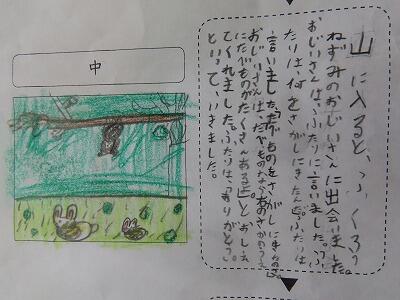 中
山に入ると、ふくろう
ねずみのおじいさんに出会いました。
おじいさんは、ふたりに言いました。「ふ
たりは、何をさがしにきたんだ。」ふたりは
言いました。「たべものをさがしにきたのさ。
おじいさんは、「たべものなら
にたべものがたくさんある とおしえ
てくれました。ふたりは、「ありがとう。」
といって、いきました。